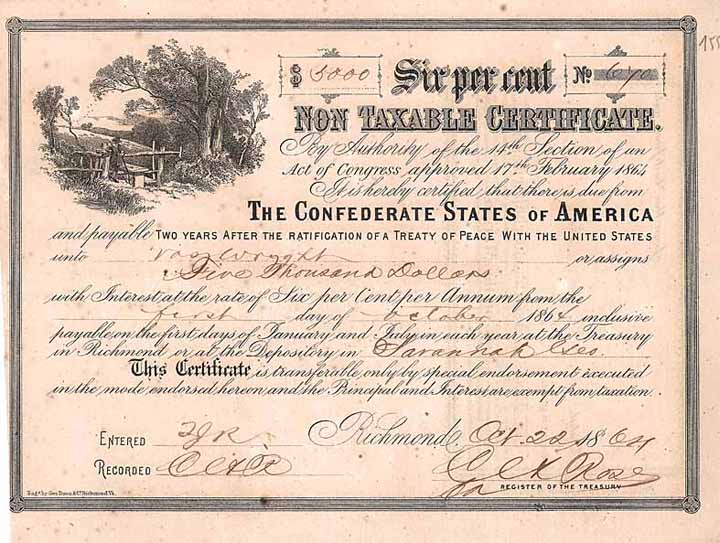 $ 5000 Six per cent No 670
NON TAXABLE CERTIFICATE.
By Authority of the 14th Section of an
Act of Congress approved 17th February 1864
It is hereby certified that there is due from
THE CONFEDERATE STATES OF AMERICA
and payable TWO YEARS AFTER THE RATIFICATION OF A TREATY OF PEACE WITH THE UNITED STATES
unto or assigns
Five Thousand Dollars
with Interest at the rate of Six per Cent per Annum from the
first day of October 1864 inclusive
payable on the first days of January and July in each year at the Treasury
in Richmond or at the Depository in Savannah Geo.
This Certificate is transferable only by special endorsement executed
in the mode endorsed hereon and the Principal and Interest are exempt from taxation.
ENTERED Richmond, Oct. 22 1864
RECORDED Rose
REGISTER OF THE TREASURY
Eng'd by Geo Dunn & Co Richmond Va.
155